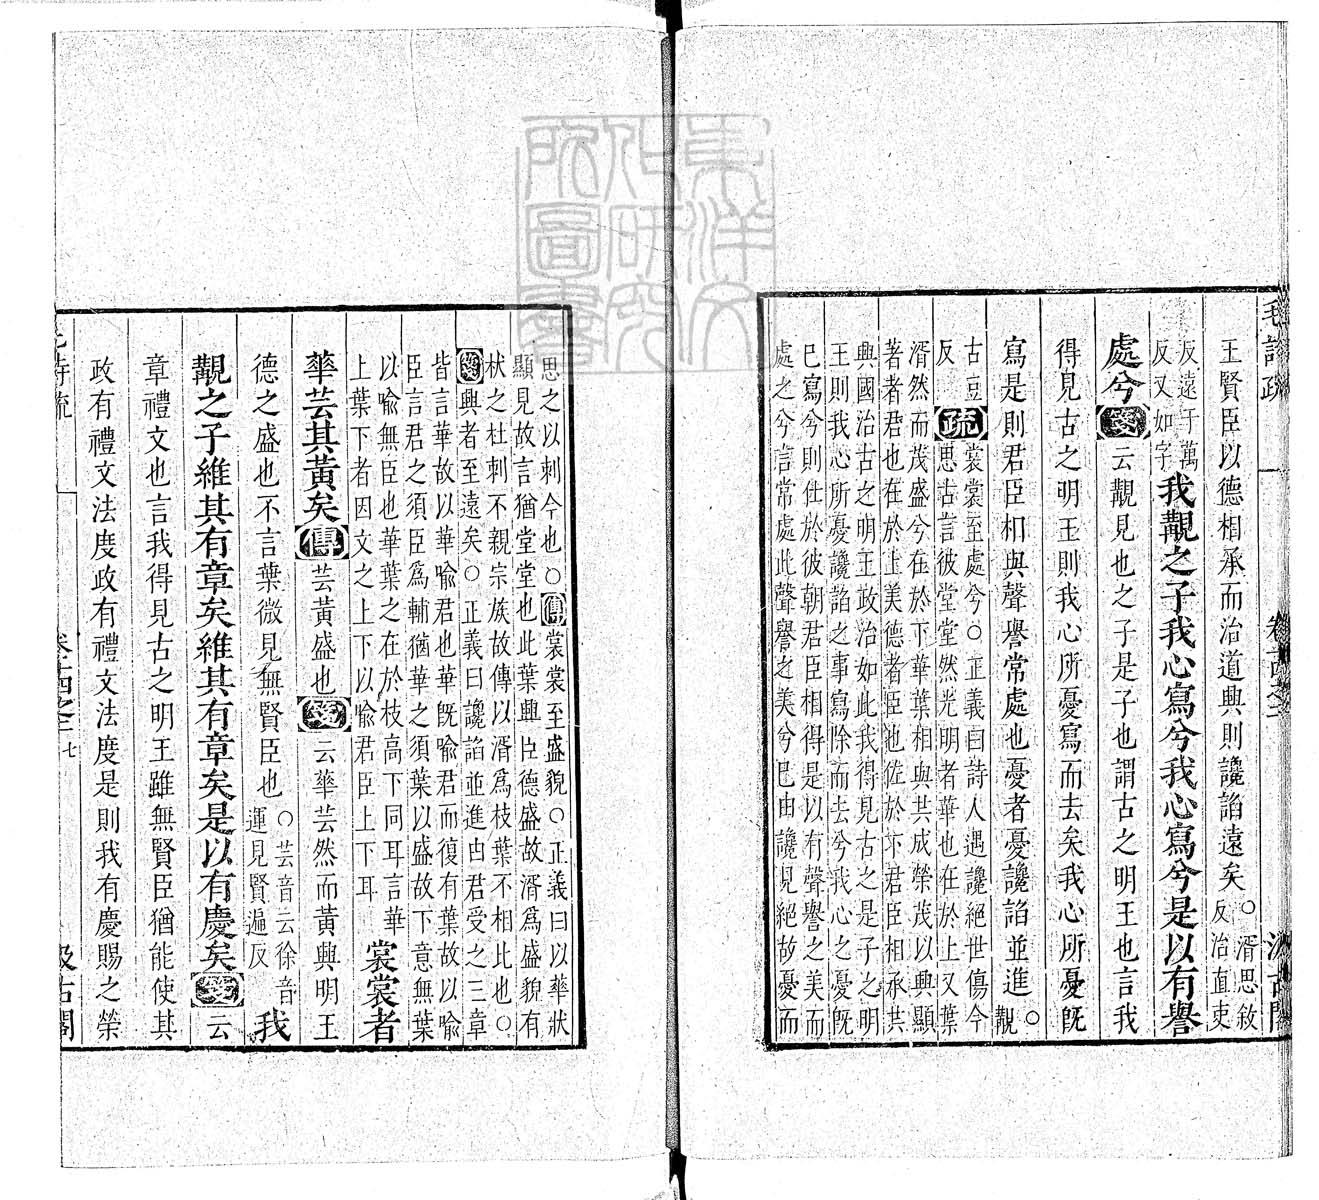 毛詩疏
卷十四之二
汲古閣
王賢臣以德相承而治道興則讒諂遠矣○湑思敘反治直吏
反遠于萬反又如字我覯之子我心寫兮我心寫兮是以有譽
處兮箋云覯見也之子是子也謂古之明王也言我
得見古之明王則我心所憂寫而去矣我心所憂既
寫是則君臣相與聲譽常處也憂者憂讒諂並進○覯
古豆反疏裳裳至處兮○正義曰詩人遇讒絕世傷今
思古言彼堂堂然光明者華也在於上又葉
湑然而茂盛兮在於下華葉相與共成榮茂以興顯
著者君也在於上美德者臣也佐於下君臣相承共
興國治古之明王政治如此我得見古之是子之明
王則我心所憂讒諂之事寫除而去兮我心之憂既
已寫兮則仕於彼朝君臣相得是以有聲譽之美而
處之兮言常處此聲譽之美兮已由讒見絕故憂而
思之以刺今也○傳裳裳至盛貌○正義曰以華狀
顯見故言猶堂堂也此葉興臣德盛故湑爲盛貌有
狀之杜刺不親宗族故傳以湑爲枝葉不相比也○
箋興者至遠矣○正義曰讒諂並進由君受之三章
皆言華故以華喻君也華既喻君而復有葉故以喻
臣言君之須臣爲輔猶華之須葉以盛故下意無葉
以喻無臣也華葉之在於枝高下同耳言華
上葉下者因文之上下以喻君臣上下耳裳裳者
華芸其黃矣傳芸黃盛也箋云華芸然而黃興明王
德之盛也不言葉微見無賢臣也○芸音云徐音運見賢遍反我
覯之子維其有章矣維其有章矣是以有慶矣箋云
章禮文也言我得見古之明王雖無賢臣猶能使其
政有禮文法度政有禮文法度是則我有慶賜之榮
毛詩疏
卷十四之二
七
汲古閣
東洋文化研究所圖書